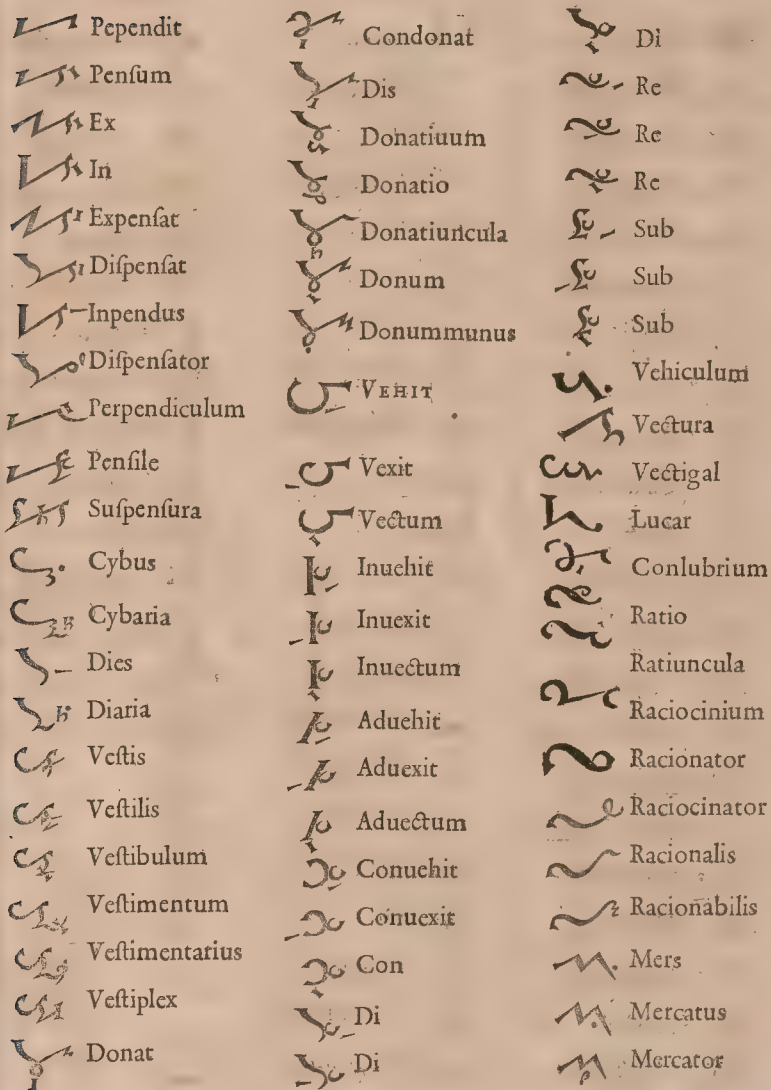 Pependit
Penſum
Ex
In
Expenſat
Diſpenſat
Inpendus
Diſpenſator
Perpendiculum
Penſile
Suſpenſura
Cybus
Cybaria
Dies
Diaria
Veſtis
Veſtilis
Veſtibulum
Veſtimentum
Veſtimentarius
Veſtiplex
Donat
Condonat
Dis
Donatiuum
Donatio
Donatiuncula
Donum
Donummunus
VEHIT
Vexit
Vectum
Inuehit
Inuexit
Inuectum
Aduehit
Aduexit
Aduectum
Conuehit
Conuexit
Con
Di
Di
Di
Re
Re
Re
Sub
Sub
Sub
Vehiculum
Vectura
Vectigal
Lucar
Conlubrium
Ratio
Ratiuncula
Raciocinium
Racionator
Raciocinator
Racionalis
Racionabilis
Mers
Mercatus
Mercator